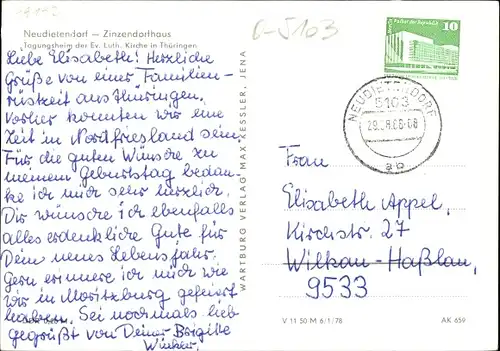 D-5103
Neudietendorf — Zinzendorfhaus
Tagungsheim der Ev. Luth. Kirche in Thüringen
Liebe Elisabeth! Herzliche
Grüße von einer Familien-
rüstzeit aus Thüringen.
Vorher konnten wir eine
Zeit in Nordfriesland sein.
Für die guten Wünsche zu
meinem Geburtstag bedan-
ke ich mich sehr herzlich.
Dir wünsche ich ebenfalls
alles erdenkliche Gute für
Dein neues Lebensjahr.
Gern erinnere ich mich wie
wir in Moritzburg gefeiert
haben. Sei nochmals lieb
gegrüßt von Deiner Brigitte
WARTBURG VERLAG MAX KESSLER, JENA
10
NEUDIETENDORF
5103
ab
Frau
Elisabeth Appel,
Kirchstr. 27
Wilkau-Haßlau,
9533
V 11 50 M 6/1/78
AK 659